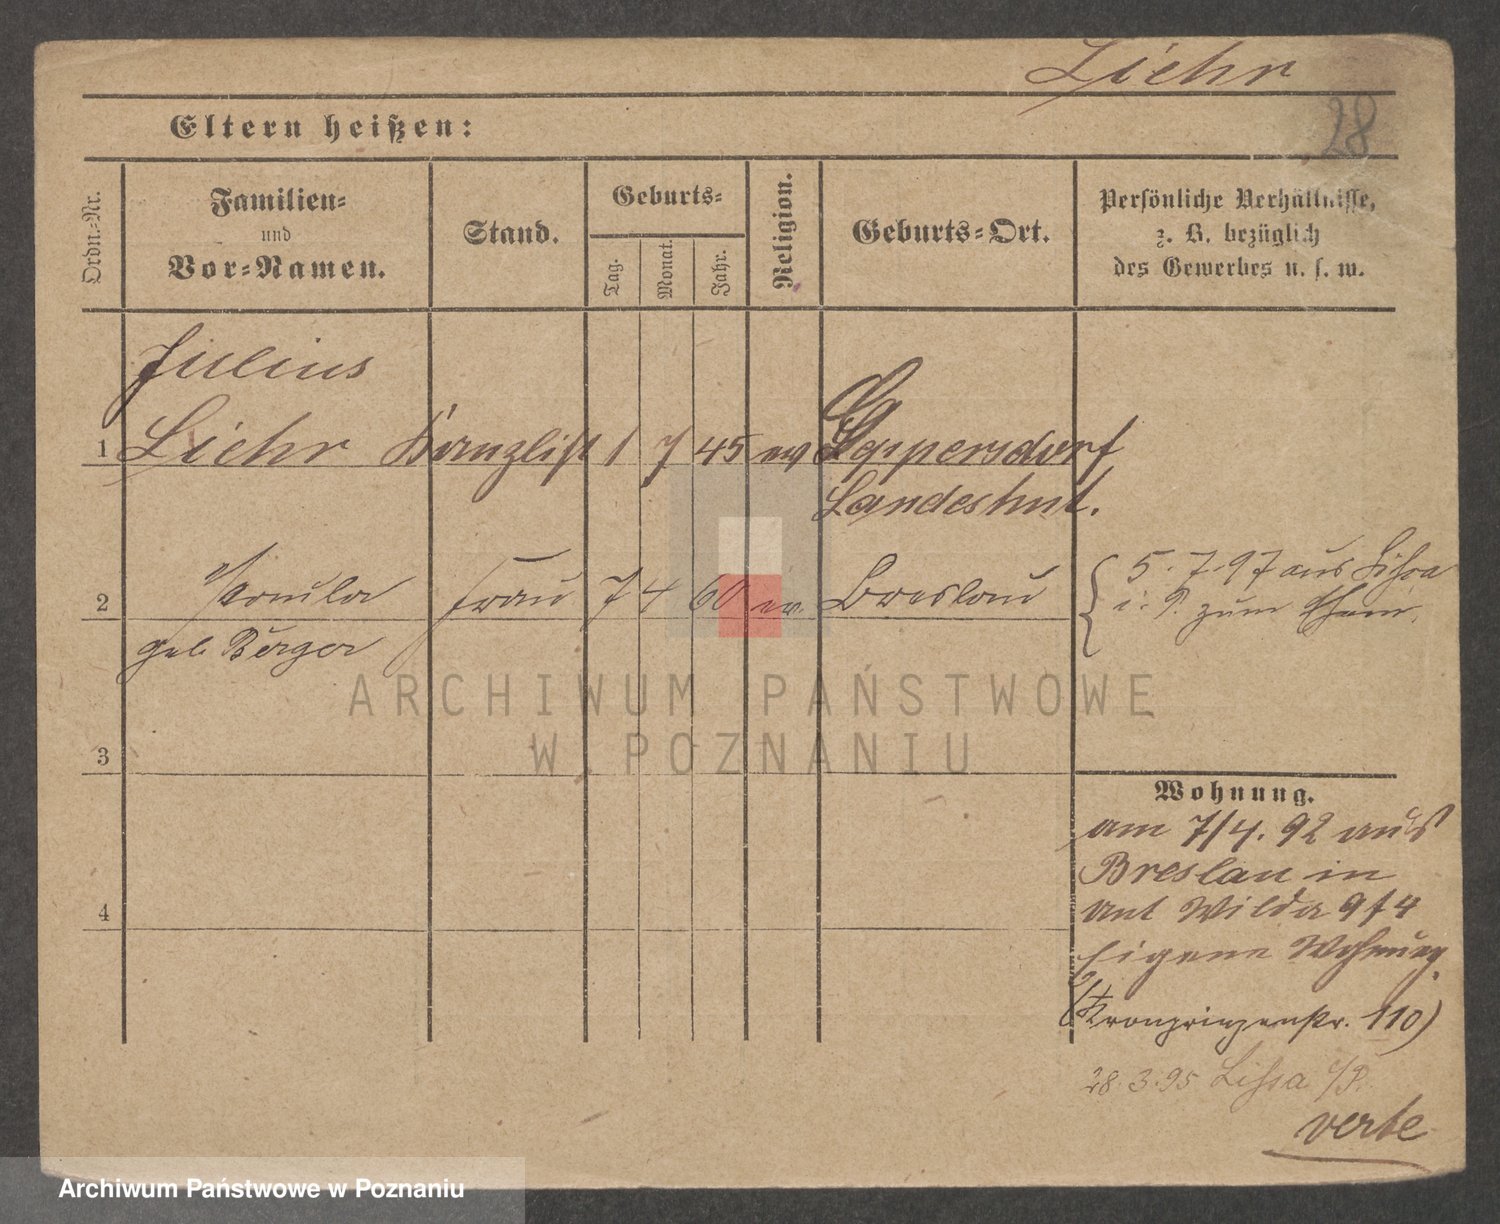 Liehr
28
Eltern heißen:
Ordn.-Nr.
Familien-
und
Vor-Namen.
Stand.
Geburts-
Tag.
Monat.
Jahr.
Religion.
Geburts-Ort.
Persönliche Verhältnisse,
z. B. bezüglich
des Gewerbes u. s. w.
Julius
1 Liehr Kanzlist 1 7 45 ev Leppersdorf
Landeshut.
2 Frau 7 4 60 ev. Breslau
geb Berger
5.7.97 aus Lissa
i. P. zum
3
4
Wohnung.
am 7/4. 92 aus
Breslau in
Wilda 94
Eigene Wohnung
(Kronprinzenstr. 110)
28.3.95 Lissa i/P.
verte
ARCHIWUM PAŃSTWOWE
W POZNANIU
Archiwum Państwowe w Poznaniu